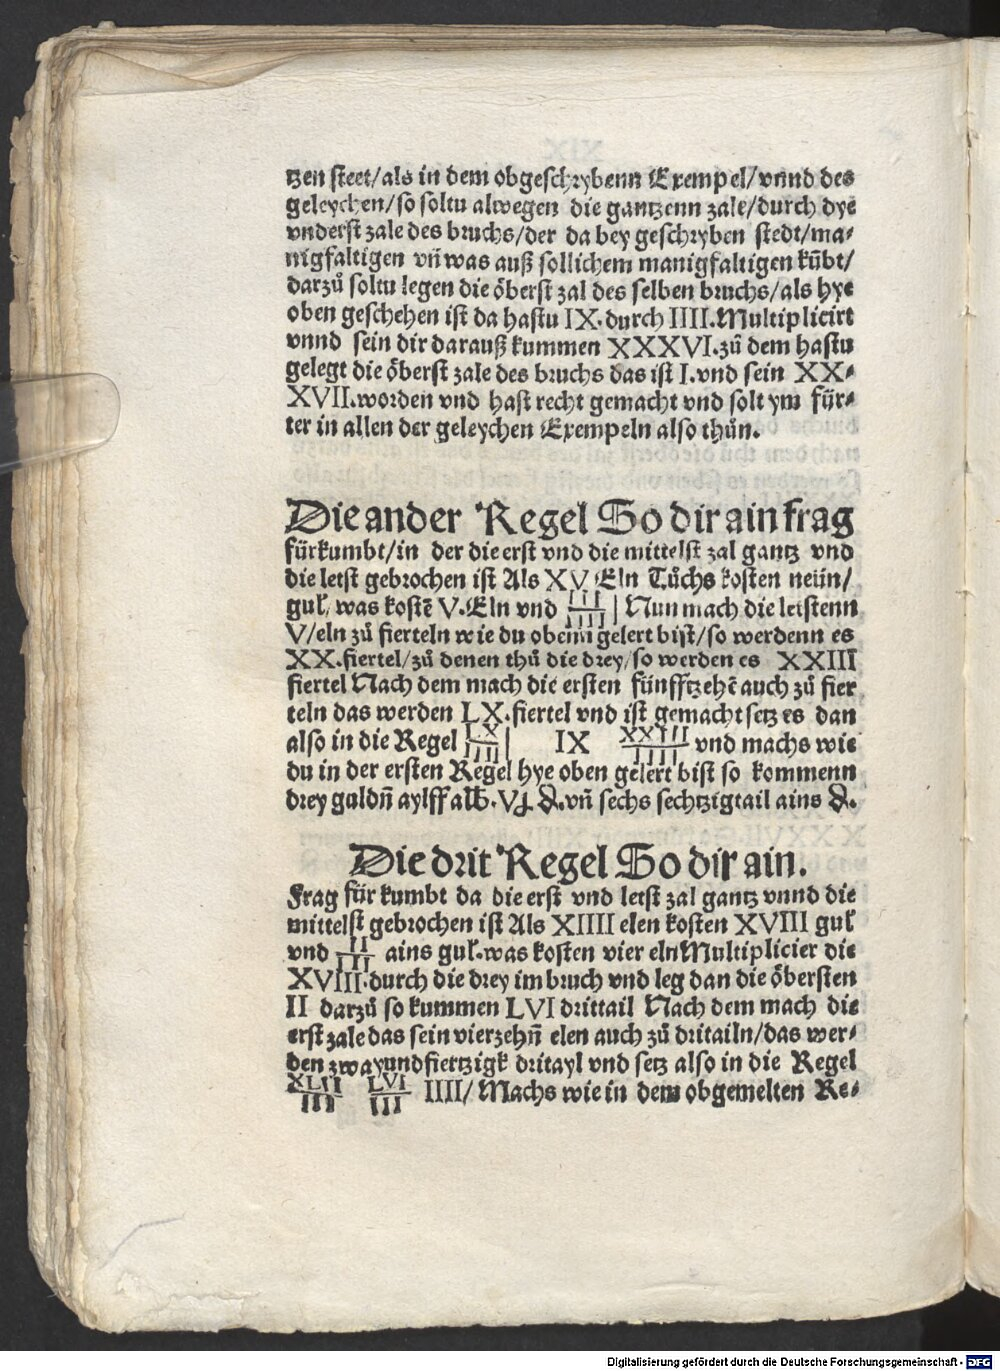 tzen steet/als in dem obgeschrybenn Exempel/vnnd des
geleychen/so soltu alwegen die gantzenn zale/durch dye
vnderst zale des bruchs/der da bey geschryben stedt/ma⸗
nigfaltigen vñ was auß sollichem manigfaltigen kũbt/
darzů soltu legen die öberst zal des selben bruchs/als hye
oben geschehen ist da hastu IX. durch IIII. Multiplicirt
vnnd sein dir darauß kummen XXXVI. zů dem hastu
gelegt die öberst zale des bruchs das ist I. vnd sein XX⸗
XVII. worden vnd hast recht gemacht vnd solt ym für⸗
ter in allen der geleychen Exempeln also thůn.
Die ander Regel So dir ain frag
fürkumbt/in der die erst vnd die mittelst zal gantz vnd
die letst gebrochen ist Als XV Eln Tůchs kosten neün/
gul. was kostẽ V. Eln vnd III/IIII | Nun mach die letstenn
V/eln zů fierteln wie du obenn gelert bist/so werdenn es
XX. fiertel/zů denen thů die drey/so werden es XXIII
fiertel Nach dem mach die ersten fünfftzehẽ auch zů fier
teln das werden LX. fiertel vnd ist gemacht setz es dan
also in die Regel LX/IIII | IX XXIII/IIII vnd machs wie
du in der ersten Regel hye oben gelert bist so kommenn
drey guldñ aylff alb. Vj. d. vñ sechs sechtzigtail ains d.
Die drit Regel So dir ain.
Frag für kumbt da die erst vnd letst zal gantz vnnd die
mittelst gebrochen ist Als XIIII elen kosten XVIII gul
vnd II/III ains gul. was kosten vier eln Multiplicier die
XVIII. durch die drey im bruch vnd leg dan die öbersten
II darzů so kummen LVI drittail Nach dem mach die
erst zale das sein vierzehñ elen auch zů dritailn/das wer⸗
den zwayundfiertzigk dritayl vnd setz also in die Regel
XLII/III LVI/III IIII/ Machs wie in dem obgemelten Re⸗
Digitalisierung gefördert durch die Deutsche Forschungsgemeinschaft - DFG